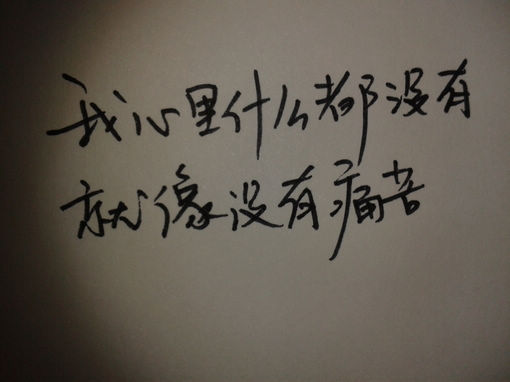 我心里什么都没有
就像没有痛苦